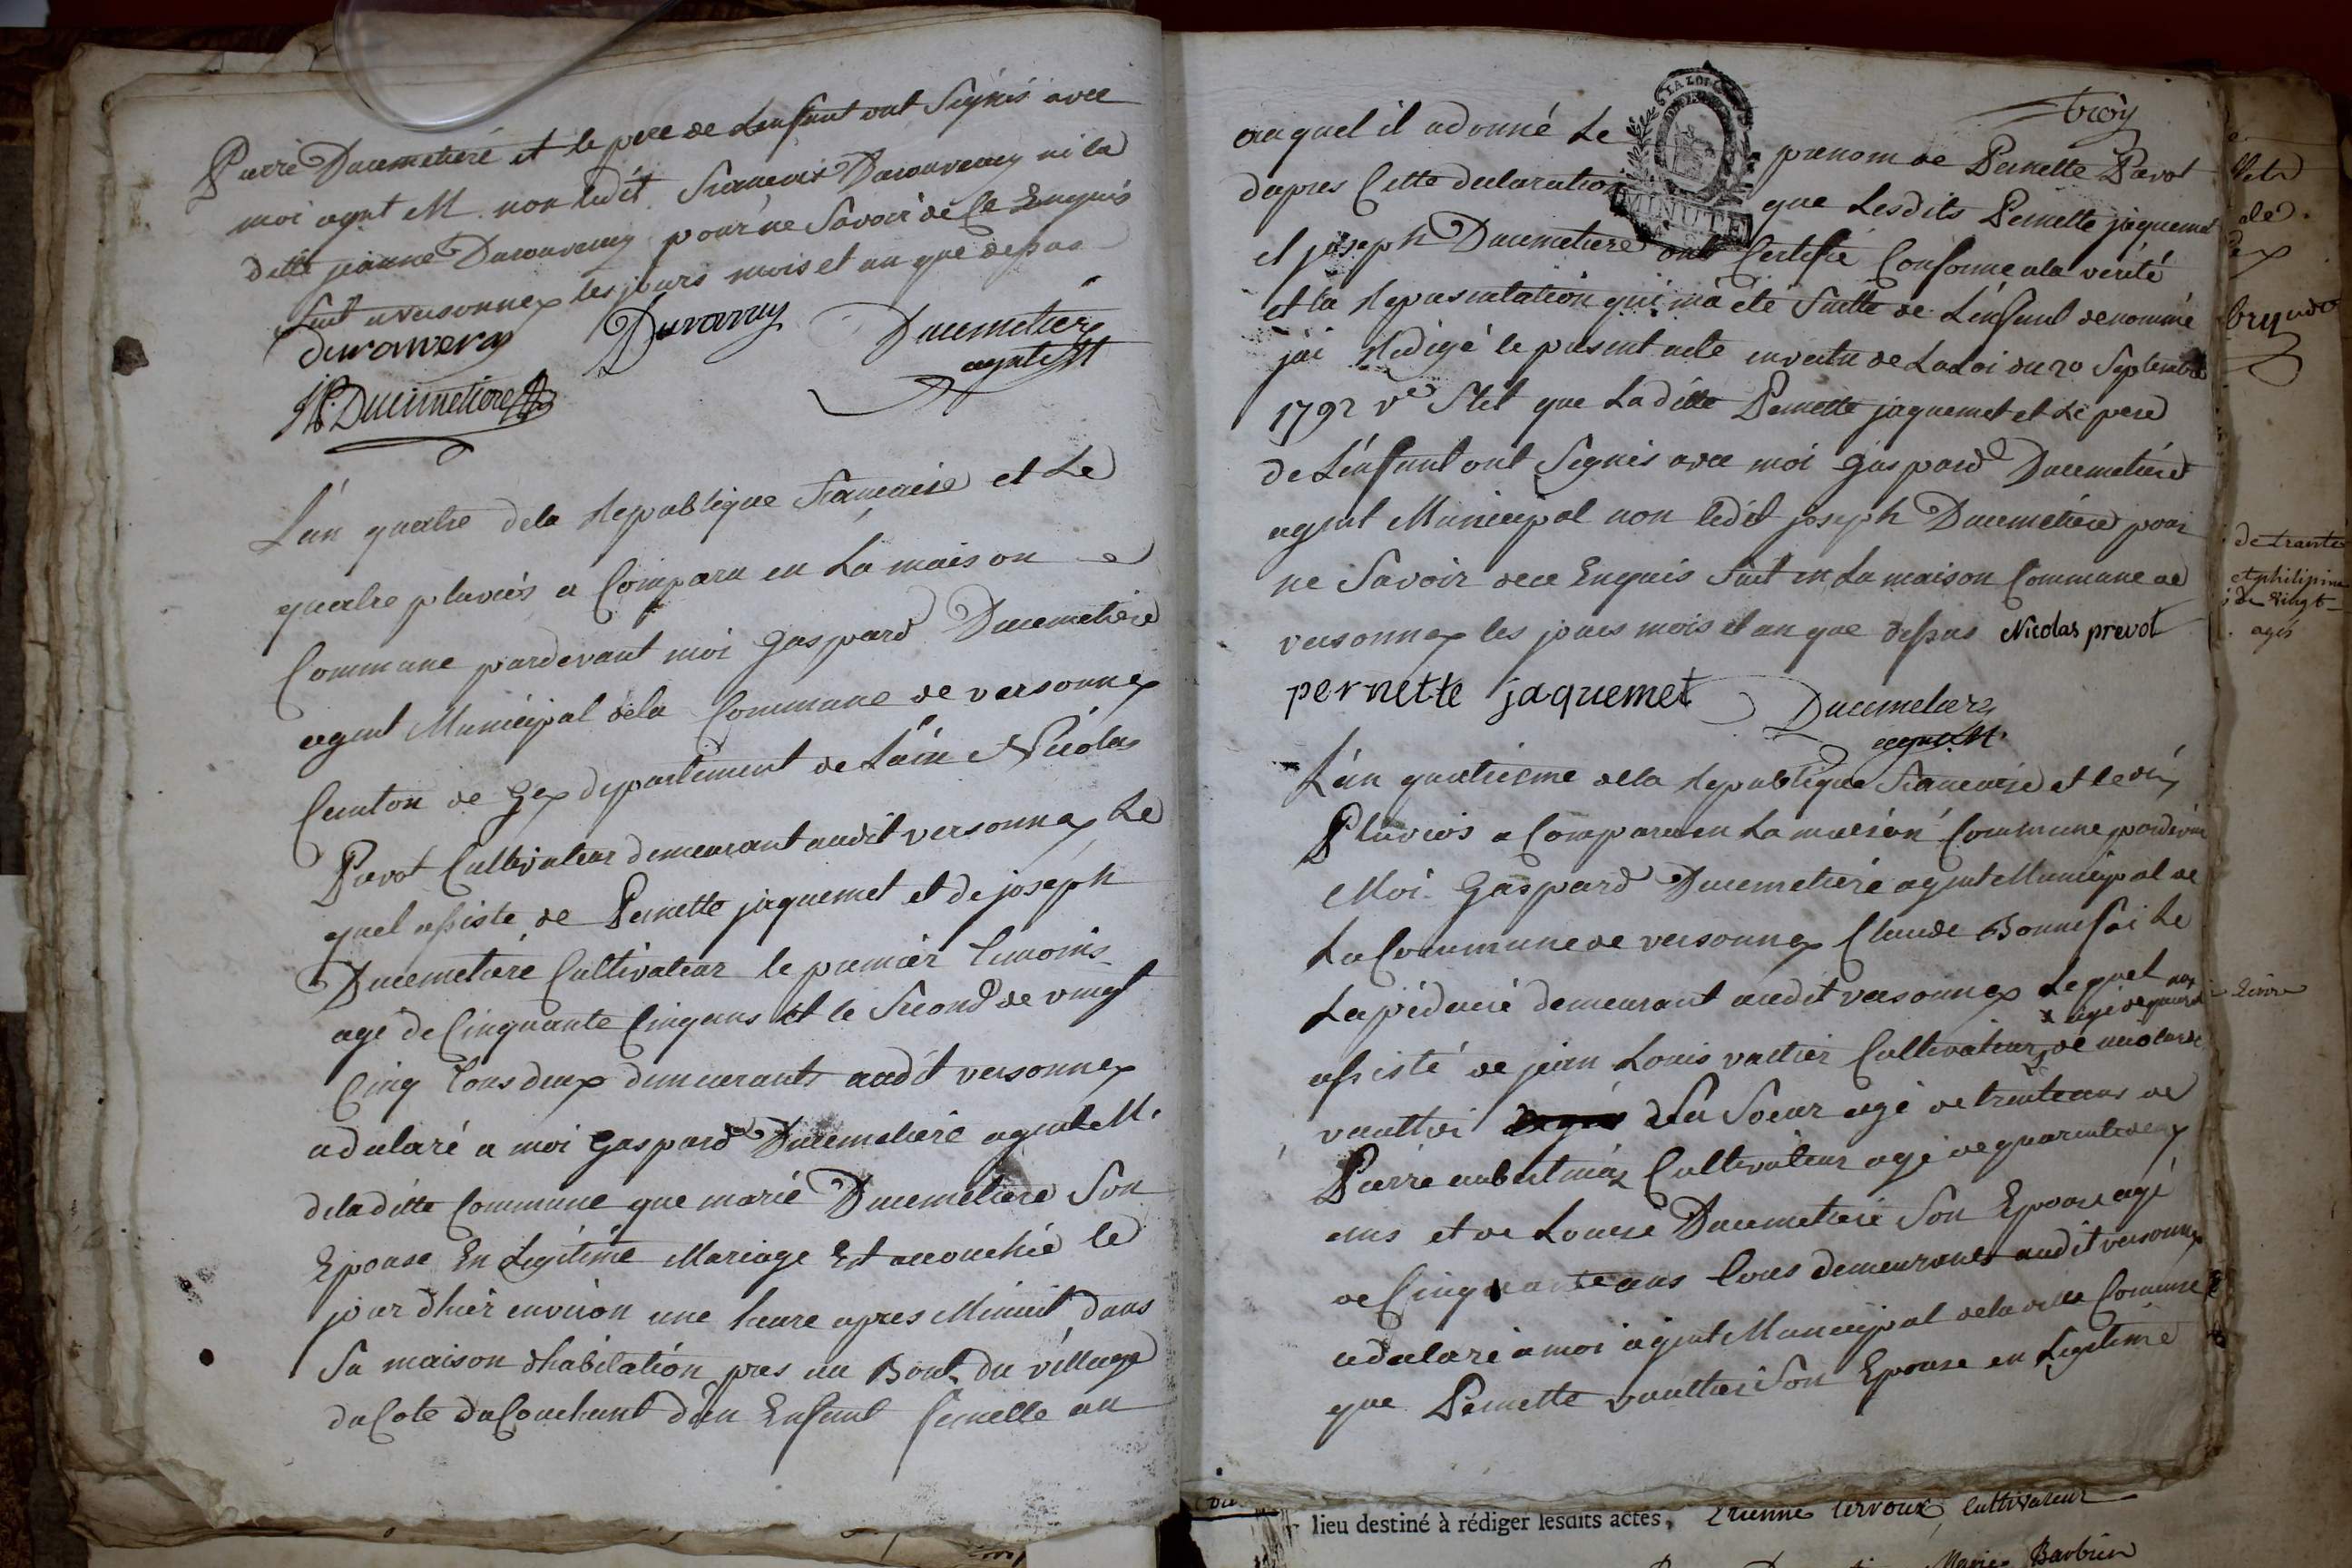 Pierre Ducimetiere et le pere de Lenfant ont Signés avec
moi agnt M. non ledit francois Duraverey ni la
ditte jeanne Duraverey pour ne Savoir de Ce Enquis
fait a versonnex les jours mois et an que dessus
duraverey Duraverey Ducimetiere
agnt M
JP. Ducimetiere
L'an quatre dela Republique francaise et Le
quatre pluvios a Comparu en La maison
Commune pardevant moi Gaspard Ducimetiere
agent Municipal dela Commune de versonnex
Canton de Gex departement de L'ain Nicolas
Prevot Cultivateur demeurant audit versonnex Le
quel assisté de Pernette jaquemet et de joseph
Ducimetiere Cultivateur le premier temoins
agé de Cinquante Cinq ans et le Second de vingt
Cinq tous deux demeurants audit versonnex
a declaré a moi Gaspard Ducimetiere agent M.
deladitte Commune que marie Ducimetiere Son
Epouse En Legitime Mariage Est accouchée le
jour d'hier environ une heure apres Minuit dans
Sa maison d'habitation pres au Bout du village
du Coté du Couchant d'un Enfant femelle au
troy
auquel il a donné Le prenom de Pernette Prevot
LA LOI
MINUTE
dapres Cette declaration que Lesdits Pernette jaquemet
et joseph Ducimetiere ont Certifié Conforme a la verité
et la Representation qui m'a été faitte de L'enfant denommé
jai Redigé le present acte en vertu de La Loi du 20 Septembre
1792 v.e Stil que Laditte Pernette jaquemet et Le pere
de L'enfant ont Signés avec moi Gaspard Ducimetiere
agent Municipal non ledit joseph Ducimetiere pour
ne Savoir de ce Enquis fait en La maison Commune de
versonnex les jours mois et an que dessus Nicolas prevot
pernette jaquemet Ducimetiere
agnt M.
L'an quatrieme dela Republique francaise et le dix
Pluvios a Comparu en La maison Commune pardevant
Moi Gaspard Ducimetiere agent Municipal de
La Commune de versonnex Claude Bonnefoi Le
Lapidaire demeurant audit versonnex Lequel
assisté de jean Louis vaultier Cultivateur
vaultier de Sa Soeur agé de trente ans de
Pierre Cultivateur agé de quarante deux
ans et de Louise Ducimetiere Son Epouse agé
de Cinquante ans tous demeurants audit versonnex
a declaré a moi agent Municipal de la ditte Commune
que Pernette vaultier Son Epouse en Legitime
de trante
et philipine
de vingt
agés
lieu destiné à rédiger lesdits actes, Etienne Cultivateur
Marie Barbier